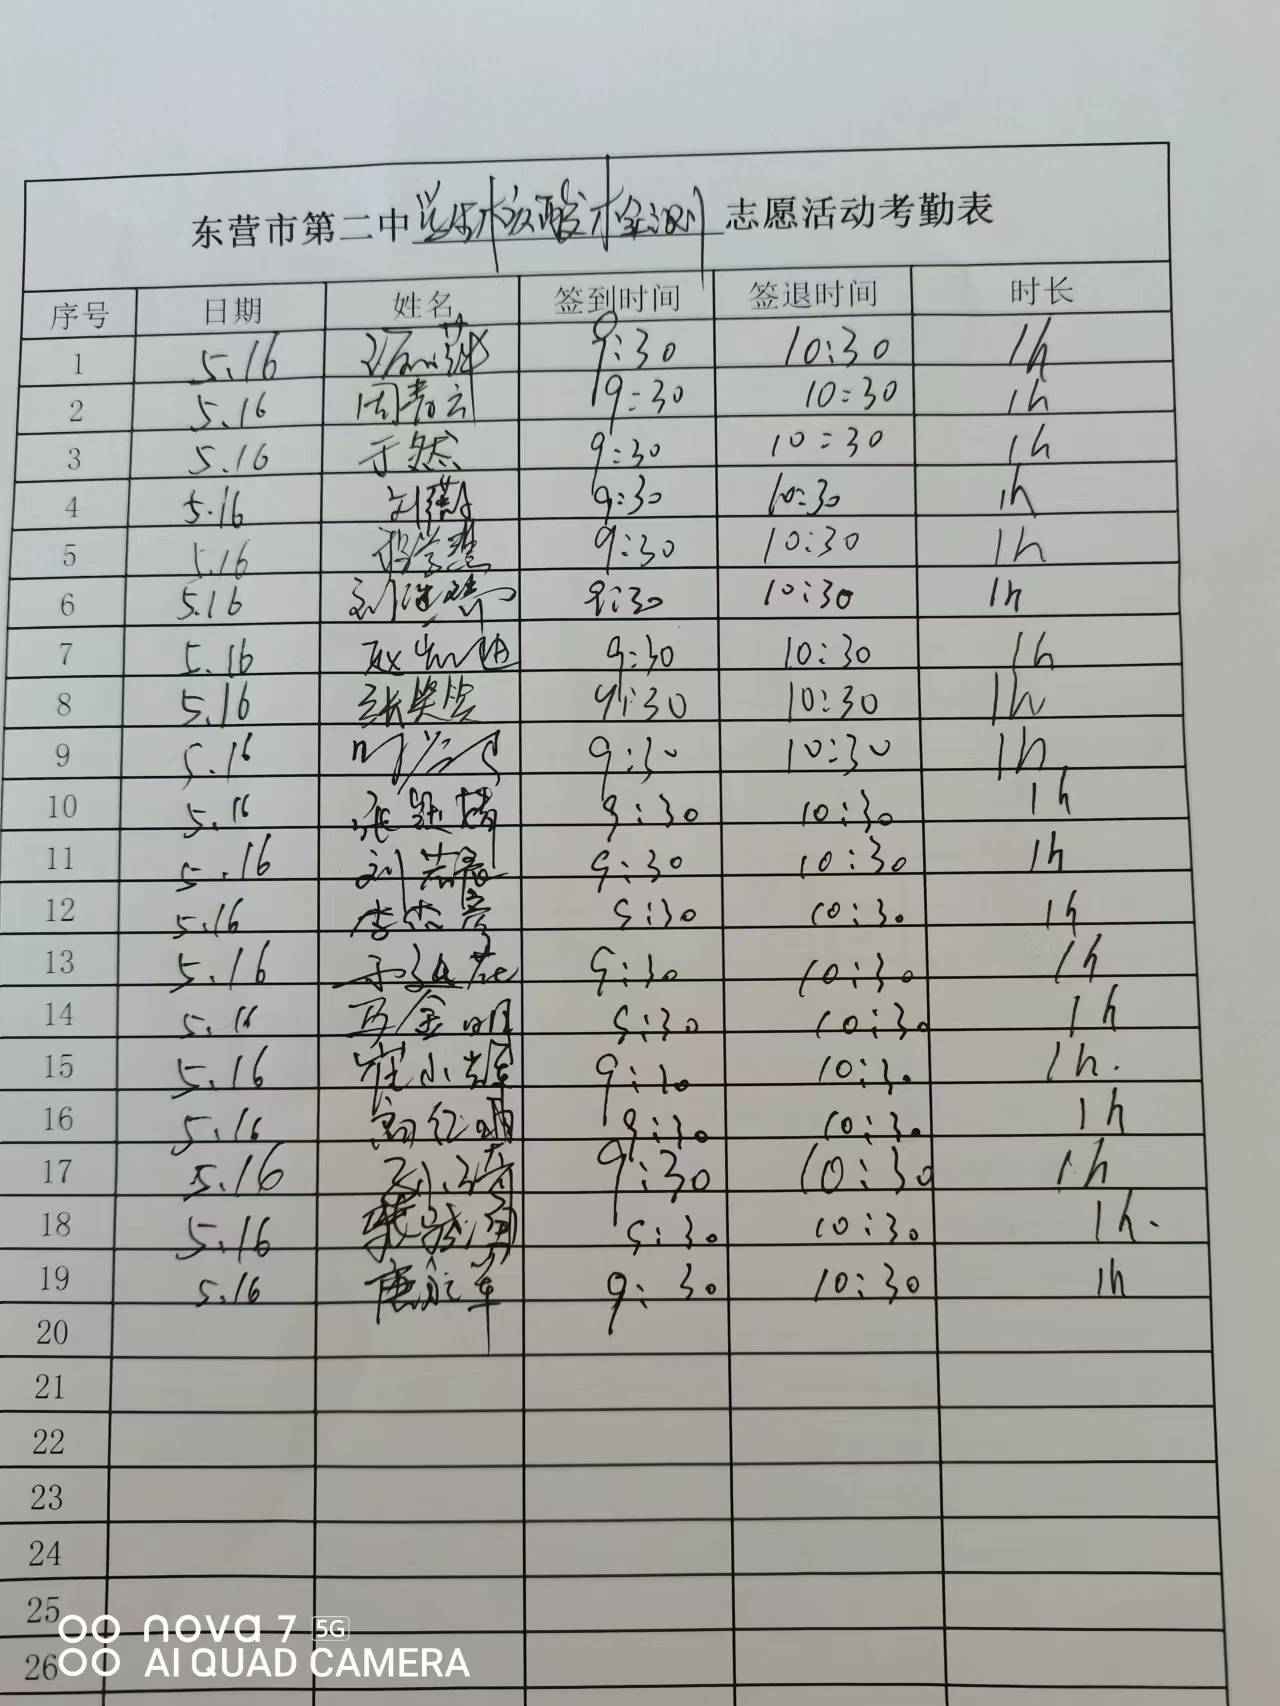 东营市第二中学乐核酸检测志愿活动考勤表
序号 日期 姓名 签到时间 签退时间 时长
1 5.16 9:30 10:30 1h
2 5.16 周青云 9:30 10:30 1h
3 5.16 于然 9:30 10:30 1h
4 5.16 9:30 10:30 1h
5 5.16 9:30 10:30 1h
6 5.16 9:30 10:30 1h
7 5.16 9:30 10:30 1h
8 5.16 9:30 10:30 1h
9 5.16 9:30 10:30 1h
10 5.16 9:30 10:30 1h
11 5.16 9:30 10:30 1h
12 5.16 9:30 10:30 1h
13 5.16 9:30 10:30 1h
14 5.16 9:30 10:30 1h
15 5.16 9:30 10:30 1h.
16 5.16 9:30 10:30 1h
17 5.16 9:30 10:30 1h
18 5.16 9:30 10:30 1h.
19 5.16 9:30 10:30 1h
20
21
22
23
24
25
26
nova 7 5G
AI QUAD CAMERA